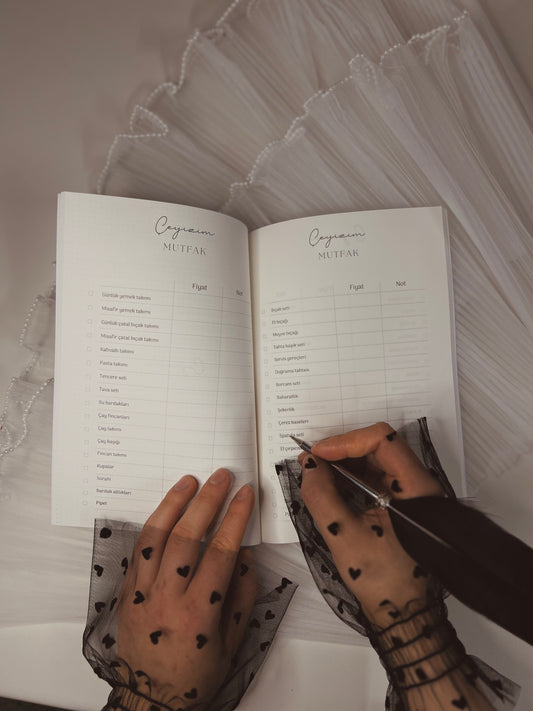 Çeyizim
MUTFAK
Fiyat
Not
Günlük yemek takımı
Misafir yemek takımı
Günlük çatal bıçak takımı
Misafir çatal bıçak takımı
Kahvaltı takımı
Pasta takımı
Tencere seti
Tava seti
Su bardakları
Çay fincanları
Çay takımı
Çay kaşığı
Fincan takımı
Kupalar
Sürahi
Bardak altlıkları
Pipet
Çeyizim
MUTFAK
Fiyat
Not
Bıçak seti
Et bıçağı
Meyve bıçağı
Tahta kaşık seti
Servis gereçleri
Doğrama tahtası
Borcam seti
Baharatlık
Şekerlik
Çerez kaseleri
seti